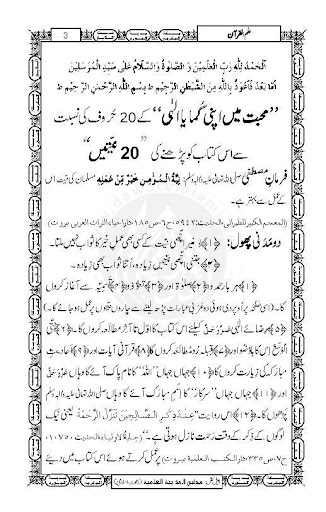 علم القرآن
3
اَلْحَمْدُ لِلّٰهِ رَبِّ الْعٰلَمِيْنَ وَ الصَّلٰوةُ وَالسَّلَامُ عَلٰى سَيِّدِ الْمُرْسَلِيْنَ
اَمَّا بَعْدُ فَاَعُوْذُ بِاللّٰهِ مِنَ الشَّيْطٰنِ الرَّجِيْمِ ط بِسْمِ اللّٰهِ الرَّحْمٰنِ الرَّحِيْمِ ط
’’محبت میں اپنی گُما یا الٰہی‘‘ کے 20 حُروف کی نسبت
سے اس کتاب کو پڑھنے کی ’’20 نیّتیں‘‘
فرمانِ مصطفٰی صلی اللہ تعالی علیہ والہ وسلم: نِيَّةُ الْمُؤْمِنِ خَيْرٌ مِّنْ عَمَلِهٖ مسلمان کی نیّت اس
کے عمل سے بہتر ہے۔
(المعجم الکبیر للطبرانی، الحدیث: ۵۹۴۲، ج۶، ص۱۸۵، داراحیاء التراث العربی بیروت)
دو مَدَنی پھول: ﴿۱﴾ بغیر اچّھی نیّت کے کسی بھی عملِ خیر کا ثواب نہیں ملتا۔
﴿۲﴾ جتنی اچّھی نیّتیں زِیادہ، اُتنا ثواب بھی زِیادہ۔
﴿۱﴾ ہر بار حمد و ﴿۲﴾ صلوٰۃ اور ﴿۳﴾ تعوُّذ و ﴿۴﴾ تَسمِیہ سے آغاز کروں
گا۔ (اسی صفحہ پر اُوپر دی ہوئی دو عَرَبی عبارات پڑھ لینے سے چاروں نیّتوں پر عمل ہو جائے گا)۔
﴿۵﴾ رِضائے الٰہی عَزَّوَجَلَّ کیلئے اس کتاب کا اوّل تا آخِر مطالَعہ کروں گا۔ ﴿۶﴾ حتَّی
الْوَسْعْ اِس کا باوُضو اور ﴿۷﴾ قِبلہ رُو مُطالَعَہ کروں گا ﴿۸﴾ قرآنی آیات اور ﴿۹﴾ احادیثِ
مبارَکہ کی زیارت کروں گا ﴿۱۰﴾ جہاں جہاں ’’اللہ‘‘ کا نامِ پاک آئے گا وہاں عَزَّوَجَلَّ
اور ﴿۱۱﴾ جہاں جہاں ’’سرکار‘‘ کا اِسمِ مبارَک آئے گا وہاں صلی اللہ تعالی علیہ والہ وسلم
پڑھوں گا۔ ﴿۱۲﴾ اس روایت ’’عِنْدَ ذِكْرِ الصَّالِحِيْنَ تَنَزَّلُ الرَّحْمَةُ یعنی نیک
لوگوں کے ذکر کے وقت رحمت نازِل ہوتی ہے۔‘‘ (حلیۃ الاولیاء، الحدیث ۱۰۷۵۰،
ج۷، ص ۳۳۵، دار الکتب العلمیۃ بیروت) پر عمل کرتے ہوئے اس کتاب میں دیئے
مجلس المدینۃ العلمیۃ